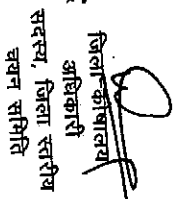 जिला कोषालय
अधिकारी
सदस्य, जिला स्तरीय
चयन समिति